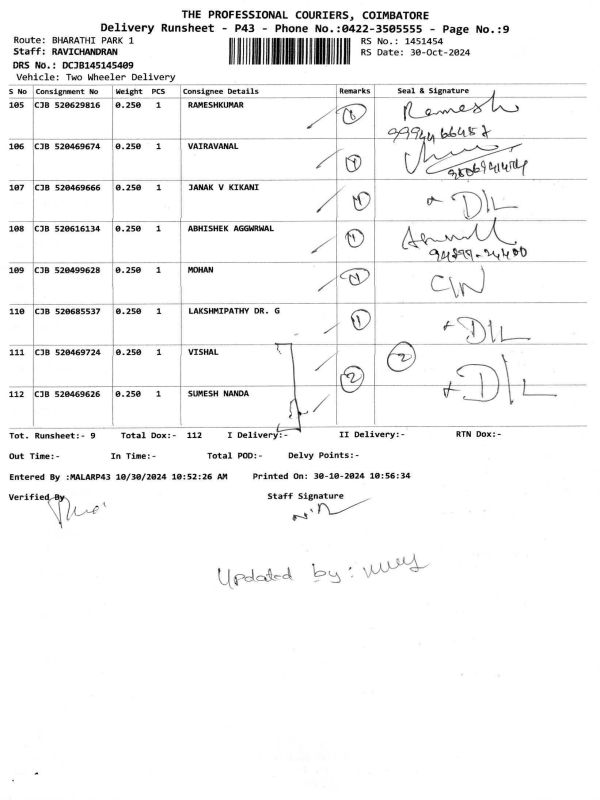 THE PROFESSIONAL COURIERS, COIMBATORE
Delivery Runsheet - P43 - Phone No.:0422-3505555 - Page No.:9
Route: BHARATHI PARK 1 RS No.: 1451454
Staff: RAVICHANDRAN RS Date: 30-Oct-2024
DRS No.: DCJB145145409
Vehicle: Two Wheeler Delivery
S No Consignment No Weight PCS Consignee Details Remarks Seal & Signature
105 CJB 520629816 0.250 1 RAMESHKUMAR Ramesh
106 CJB 520469674 0.250 1 VAIRAVANAL
107 CJB 520469666 0.250 1 JANAK V KIKANI D/L
108 CJB 520616134 0.250 1 ABHISHEK AGGWRWAL
109 CJB 520499628 0.250 1 MOHAN C/N
110 CJB 520685537 0.250 1 LAKSHMIPATHY DR. G D/L
111 CJB 520469724 0.250 1 VISHAL 2
112 CJB 520469626 0.250 1 SUMESH NANDA 2 D/L
Tot. Runsheet:- 9 Total Dox:- 112 I Delivery:- II Delivery:- RTN Dox:-
Out Time:- In Time:- Total POD:- Delvy Points:-
Entered By :MALARP43 10/30/2024 10:52:26 AM Printed On: 30-10-2024 10:56:34
Verified By Staff Signature
Updated by: